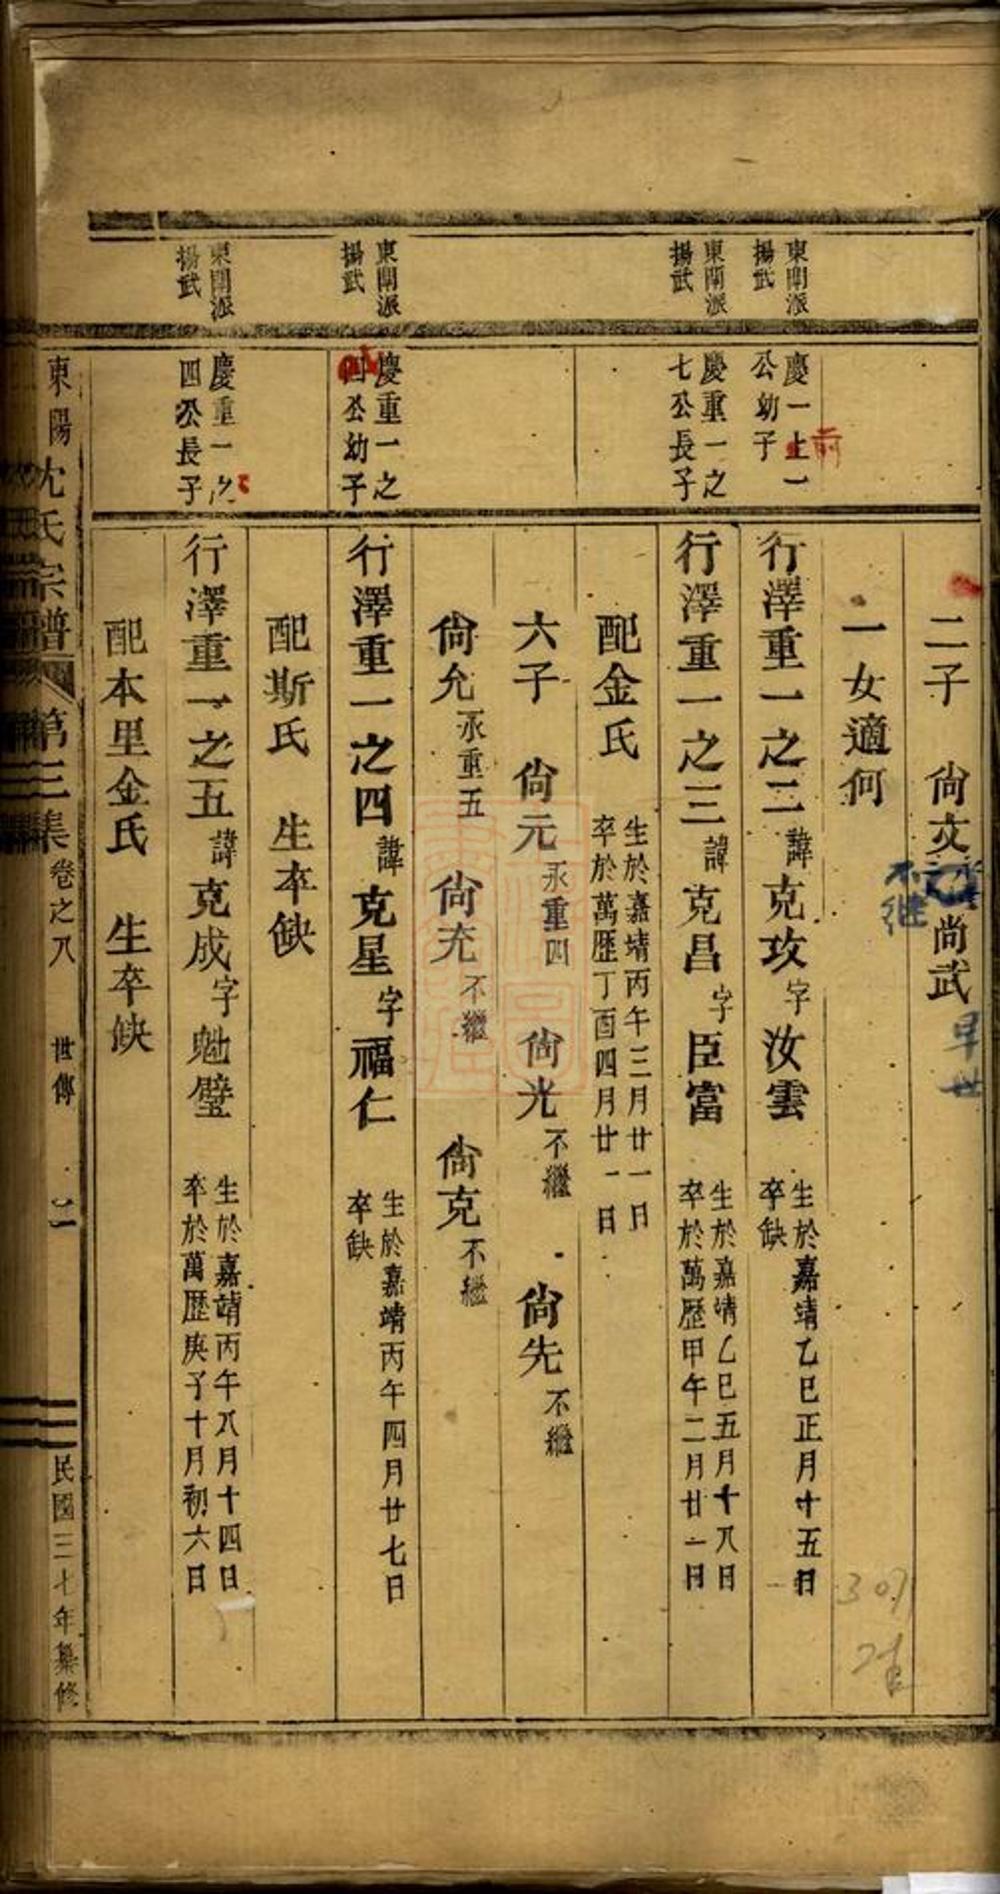 二子　尙文　尚武
不继
早世
一女適何
東閘派
揚武
慶一上一
公幼子
前
行澤重一之二諱克攻字汝雲
生於嘉靖乙巳正月十五日
卒缺
東閘派
揚武
慶重一之
七公長子
行澤重一之三諱克昌字臣富
生於嘉靖乙巳五月十八日
卒於萬歷甲午二月廿一日
配金氏
生於嘉靖丙午三月廿一日
卒於萬歷丁酉四月廿一日
六子　尙元永重四　尙光不繼　尙先不繼
尙允永重五　尙充不繼　尙克不繼
東閘派
揚武
慶重一之
四公幼子
行澤重一之四諱克星字福仁
生於嘉靖丙午四月廿七日
卒缺
配斯氏　生卒缺
東閘派
揚武
慶重一之
四公長子
行澤重一之五諱克成字魁璧
生於嘉靖丙午八月十四日
卒於萬歷庚子十月初六日
配本里金氏　生卒缺
東陽沈氏宗譜　第三集　卷之八　世傳　民國三十七年纂修